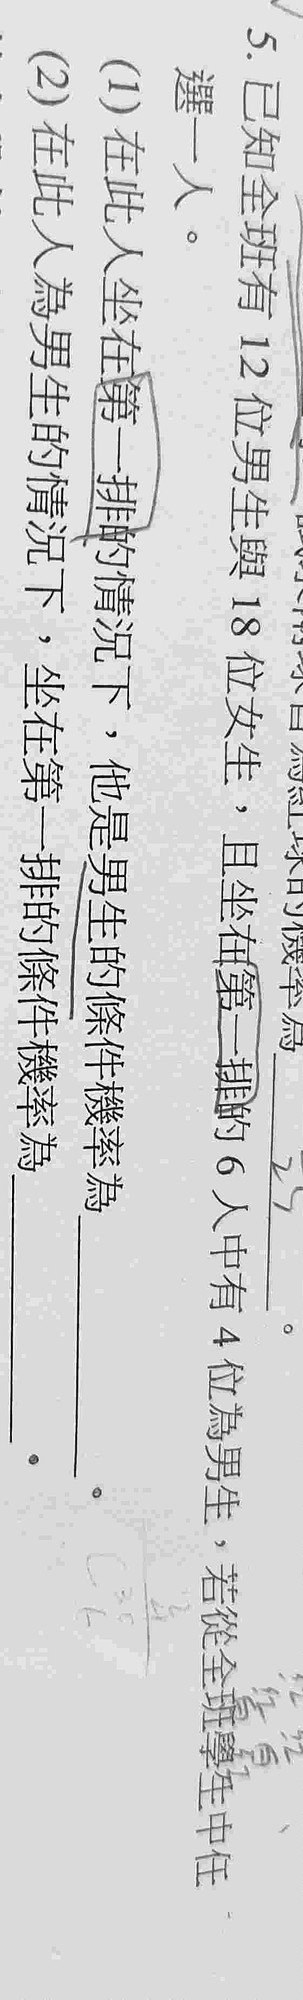 5. 已知全班有 12 位男生與 18 位女生，且坐在第一排的 6 人中有 4 位為男生，若從全班學生中任
選一人。
(1) 在此人坐在第一排的情況下，他是男生的條件機率為
。
(2) 在此人為男生的情況下，坐在第一排的條件機率為
。